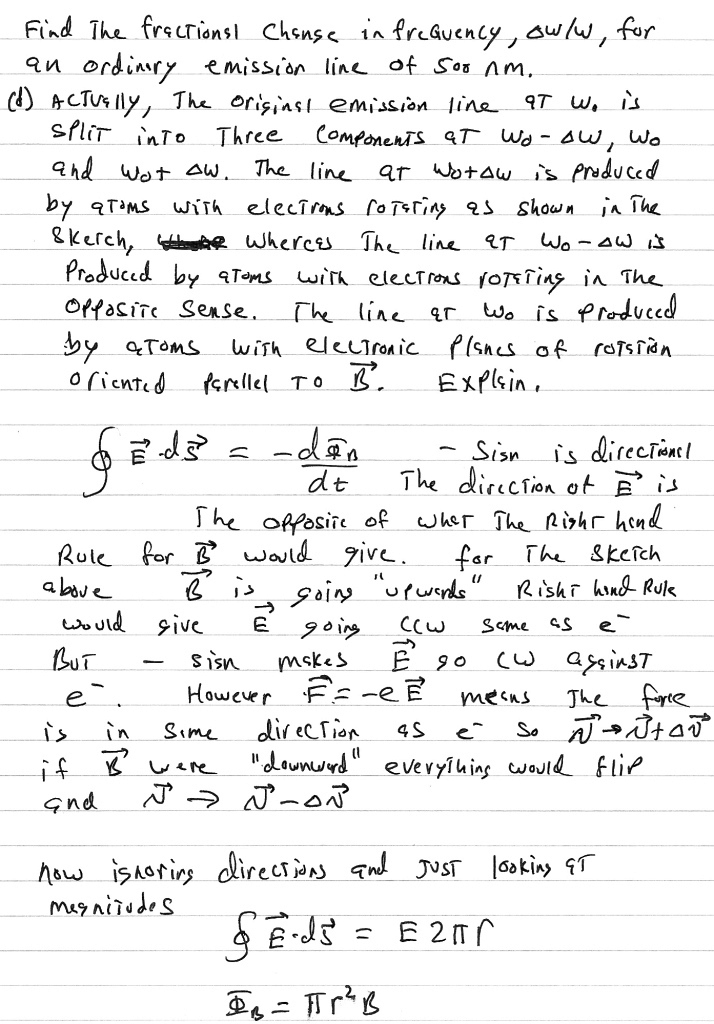 Find The fractional change in frequency, Δω/ω, for
an ordinary emission line of 500 nm.
(d) Actually, The original emission line at ω₀ is
split into Three components at ω₀ - Δω, ω₀
and ω₀ + Δω. The line at ω₀ + Δω is produced
by atoms with electrons rotating as shown in The
sketch, whereas The line at ω₀ - Δω is
produced by atoms with electrons rotating in The
opposite sense. The line at ω₀ is produced
by atoms with electronic planes of rotation
oriented parallel to B⃗. Explain.
∮ E⃗·ds⃗ = -dΦ_B/dt - sign is directional
The direction of E⃗ is
The opposite of what The Right hand
Rule for B⃗ would give. for The sketch
above B⃗ is going "upwards" Right hand Rule
would give E⃗ going CCW same as e⁻
But - sign makes E⃗ go CW against
e⁻. However F⃗ = -eE⃗ means The force
is in same direction as e⁻ so v⃗ → v⃗ + Δv⃗
if B⃗ were "downward" everything would flip
and v⃗ → v⃗ - Δv⃗
now ignoring directions and just looking at
magnitudes
∮ E⃗·ds⃗ = E 2πr
Φ_B = πr²B